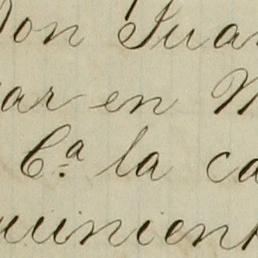 Don Juan
ar en M
Cª la ca
quinient